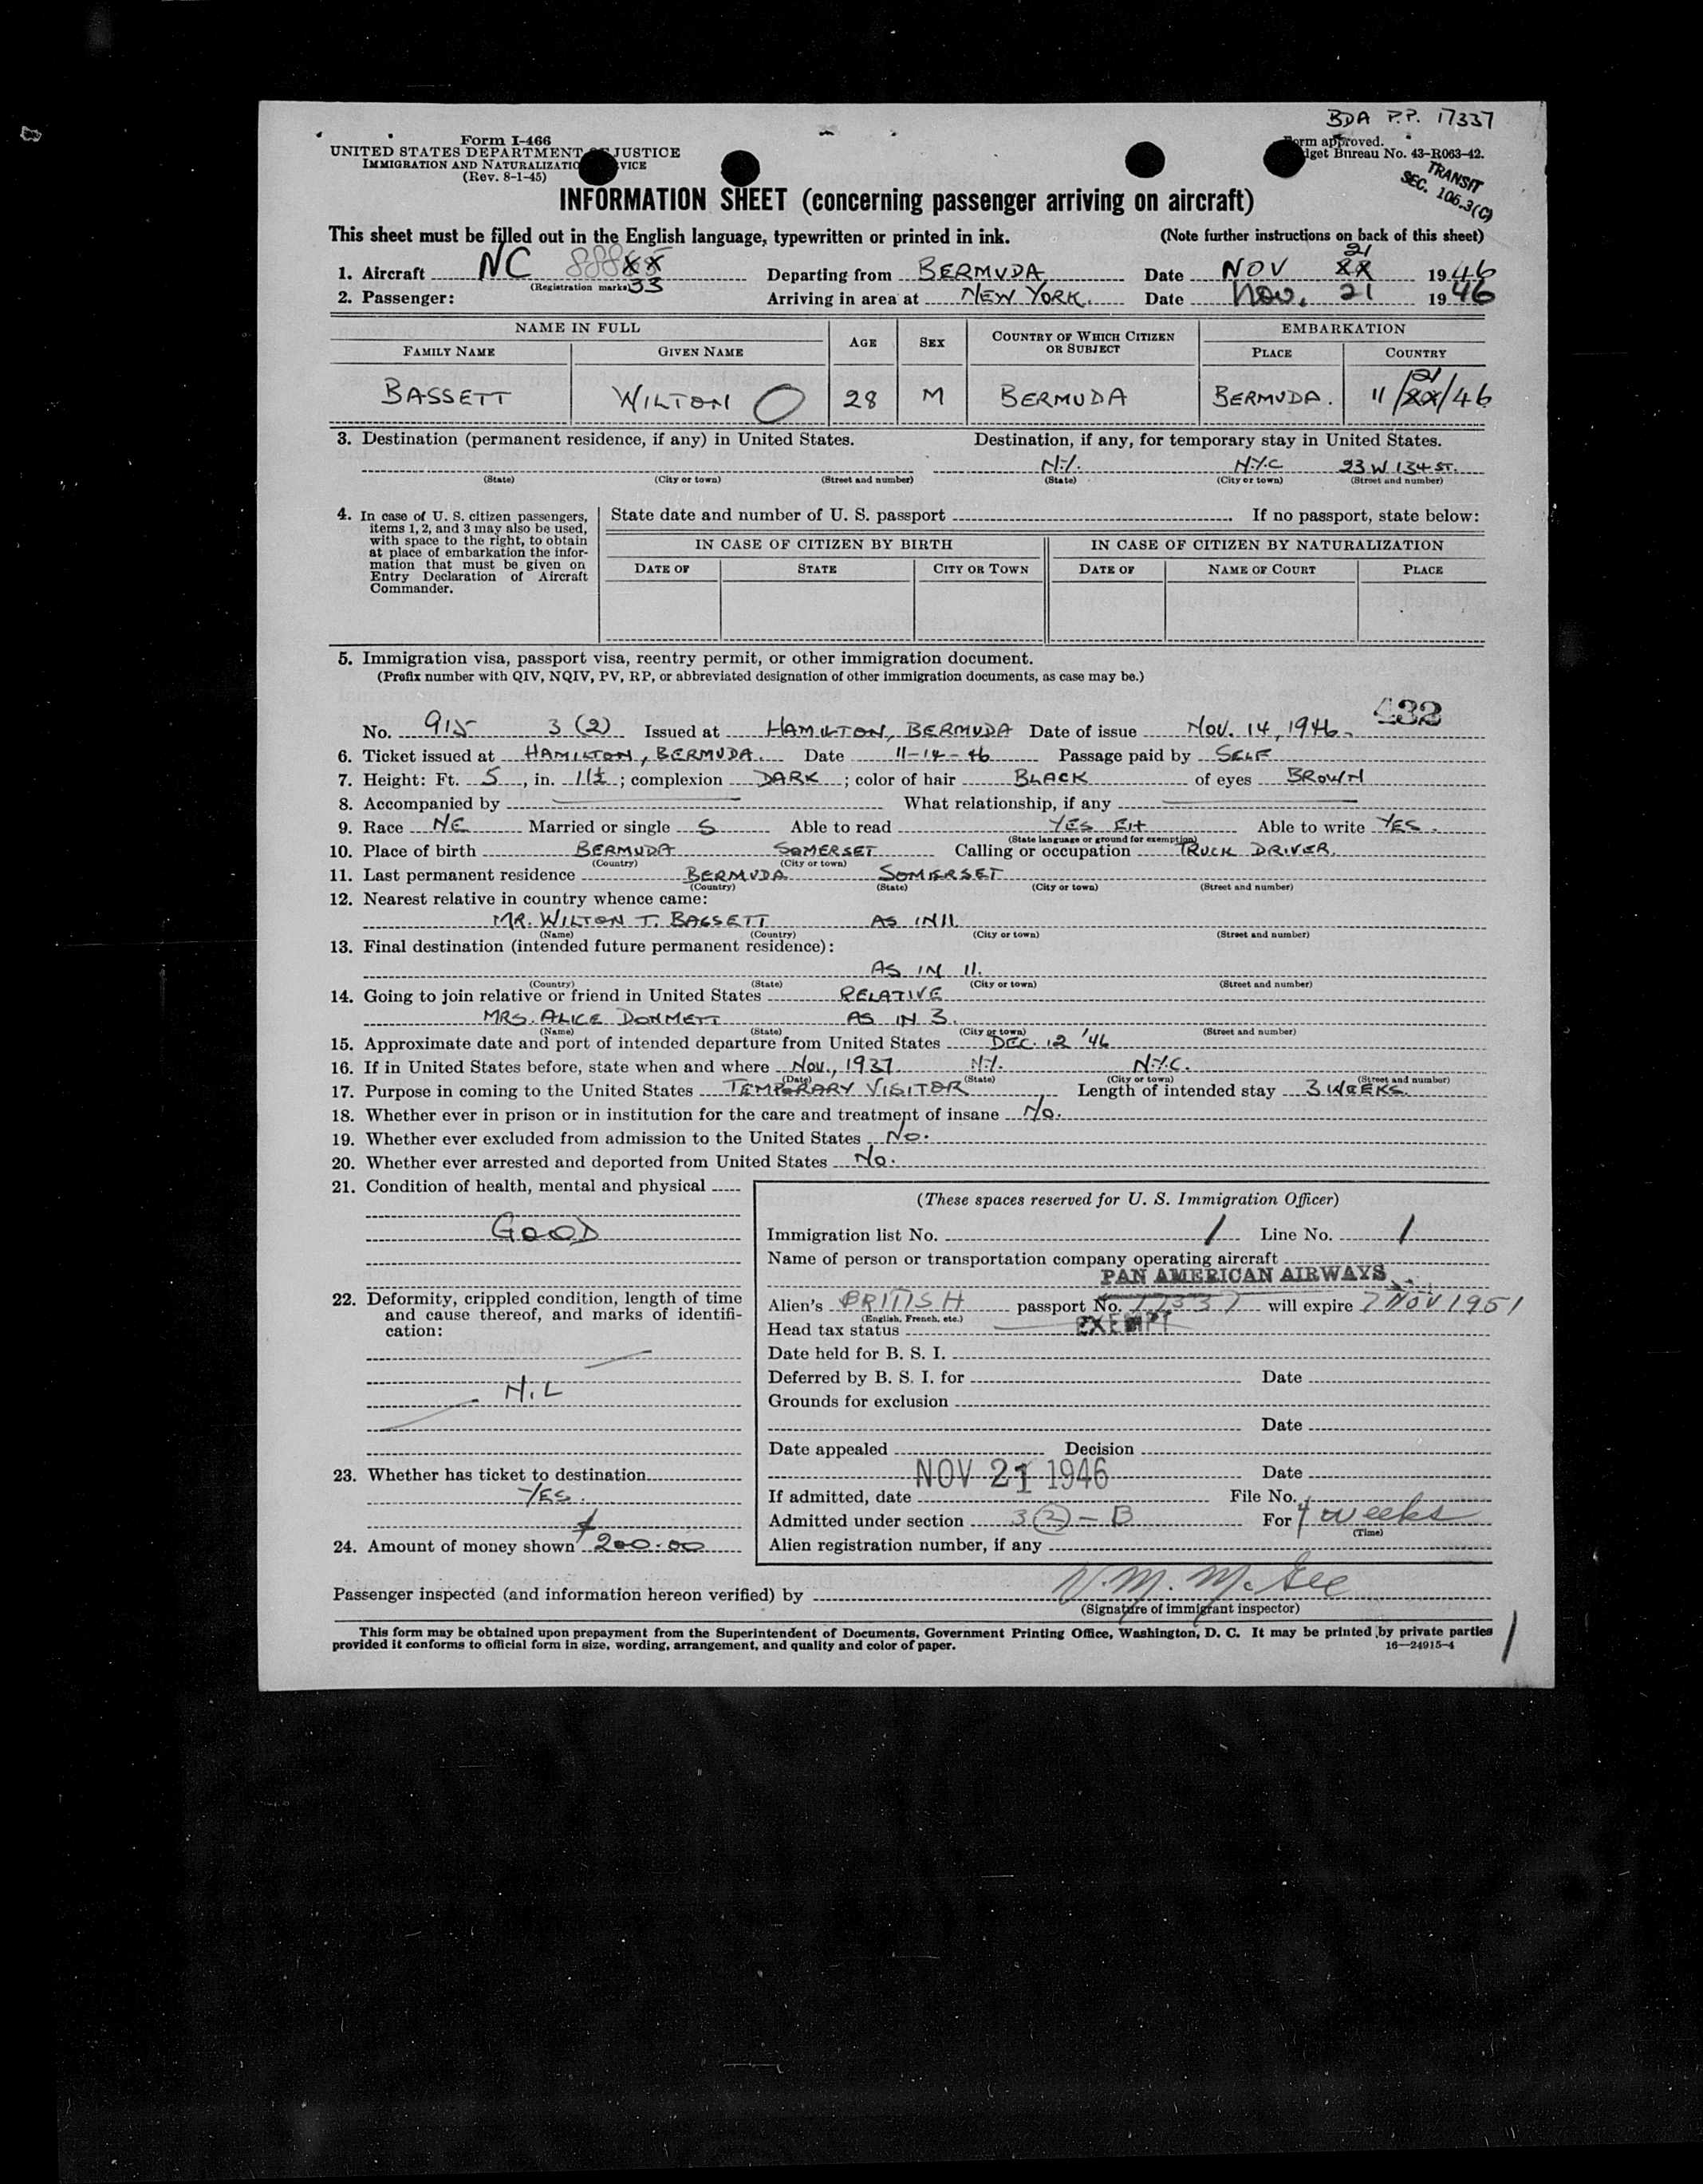 BDA P.P. 17337
Form I-466
UNITED STATES DEPARTMENT OF JUSTICE
IMMIGRATION AND NATURALIZATION SERVICE
(Rev. 8-1-45)
Form approved.
Budget Bureau No. 43-R063-42.
TRANSIT
SEC. 106.3(C)
INFORMATION SHEET (concerning passenger arriving on aircraft)
This sheet must be filled out in the English language, typewritten or printed in ink. (Note further instructions on back of this sheet)
21
1. Aircraft NC 888 Departing from BERMUDA Date NOV 1946
(Registration marks) 33
2. Passenger: Arriving in area at NEW YORK. Date NOV. 21 1946
NAME IN FULL AGE SEX COUNTRY OF WHICH CITIZEN OR SUBJECT EMBARKATION
FAMILY NAME GIVEN NAME PLACE COUNTRY
21
BASSETT WILTON O 28 M BERMUDA BERMUDA. 11/ /46
3. Destination (permanent residence, if any) in United States. Destination, if any, for temporary stay in United States.
N.Y. N.Y.C 23 W 134 ST.
(State) (City or town) (Street and number) (State) (City or town) (Street and number)
4. In case of U. S. citizen passengers, items 1, 2, and 3 may also be used, with space to the right, to obtain at place of embarkation the information that must be given on Entry Declaration of Aircraft Commander.
State date and number of U. S. passport If no passport, state below:
IN CASE OF CITIZEN BY BIRTH IN CASE OF CITIZEN BY NATURALIZATION
DATE OF STATE CITY OR TOWN DATE OF NAME OF COURT PLACE
5. Immigration visa, passport visa, reentry permit, or other immigration document.
(Prefix number with QIV, NQIV, PV, RP, or abbreviated designation of other immigration documents, as case may be.)
432
No. 915 3 (2) Issued at HAMILTON, BERMUDA Date of issue NOV. 14, 1946.
6. Ticket issued at HAMILTON, BERMUDA. Date 11-14-46 Passage paid by SELF
7. Height: Ft. 5, in. 11½; complexion DARK; color of hair BLACK of eyes BROWN
8. Accompanied by What relationship, if any
9. Race NE Married or single S Able to read YES Able to write YES.
(State language or ground for exemption)
10. Place of birth BERMUDA SOMERSET Calling or occupation TRUCK DRIVER.
(Country) (City or town)
11. Last permanent residence BERMUDA SOMERSET
(Country) (State) (City or town) (Street and number)
12. Nearest relative in country whence came:
MR. WILTON T. BASSETT AS IN 11
(Name) (Country) (City or town) (Street and number)
13. Final destination (intended future permanent residence):
AS IN 11.
(Country) (State) (City or town) (Street and number)
14. Going to join relative or friend in United States RELATIVE
MRS. ALICE DONMETT AS IN 3.
(Name) (State) (City or town) (Street and number)
15. Approximate date and port of intended departure from United States DEC. 12 '46
16. If in United States before, state when and where NOV., 1937 N.Y. N.Y.C.
(Date) (State) (City or town) (Street and number)
17. Purpose in coming to the United States TEMPORARY VISITOR Length of intended stay 3 WEEKS.
18. Whether ever in prison or in institution for the care and treatment of insane No.
19. Whether ever excluded from admission to the United States No.
20. Whether ever arrested and deported from United States No.
21. Condition of health, mental and physical
GOOD
22. Deformity, crippled condition, length of time and cause thereof, and marks of identification:
NIL
23. Whether has ticket to destination
YES.
24. Amount of money shown $200.00
(These spaces reserved for U. S. Immigration Officer)
Immigration list No. 1 Line No. 1
Name of person or transportation company operating aircraft
PAN AMERICAN AIRWAYS
Alien's BRITISH passport No. 17337 will expire 7 NOV 1951
(English, French, etc.)
Head tax status EXEMPT
Date held for B. S. I.
Deferred by B. S. I. for Date
Grounds for exclusion
Date
Date appealed Decision
Date
If admitted, date NOV 21 1946 File No.
Admitted under section 3(2)-B For 4 weeks
(Time)
Alien registration number, if any
Passenger inspected (and information hereon verified) by V. M. McGee
(Signature of immigrant inspector)
This form may be obtained upon prepayment from the Superintendent of Documents, Government Printing Office, Washington, D. C. It may be printed by private parties
provided it conforms to official form in size, wording, arrangement, and quality and color of paper. 16—24915-4
1